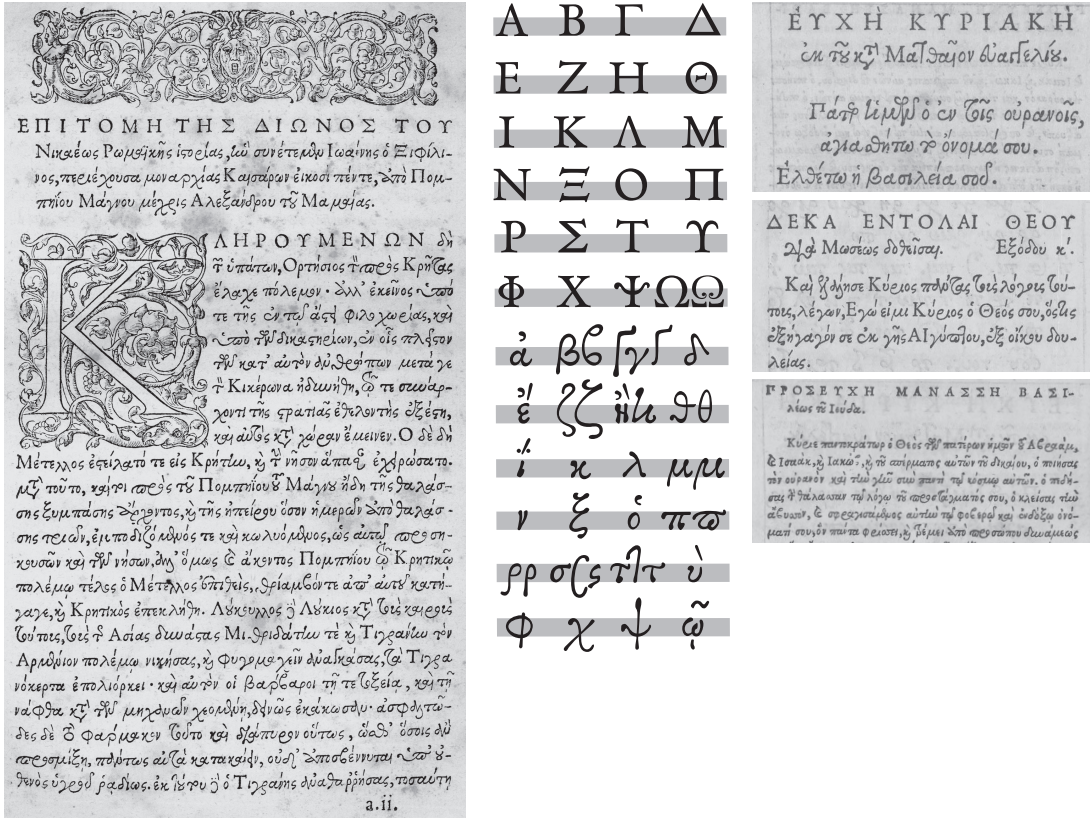 ΕΠΙΤΟΜΗ ΤΗΣ ΔΙΩΝΟΣ ΤΟΥ
Νικαέως Ρωμαϊκῆς ἱστορίας, ἣν συνέτεμεν Ἰωάννης ὁ Ξιφιλῖ-
νος, περιέχουσα μοναρχίας Καισάρων εἴκοσι πέντε, ἀπὸ Πομ-
πηΐου Μάγνου μέχρις Ἀλεξάνδρου τοῦ Μαμαίας.
ΚΛΗΡΟΥΜΕΝΩΝ δὴ
τῶν ὑπάτων, Ὁρτήσιος τὸν πρὸς Κρῆτας
ἔλαχε πόλεμον· ἀλλ' ἐκεῖνος ὑπό
τε τῆς ἐν τῷ ἄστει φιλοχωρίας, καὶ
ὑπὸ τῶν δικαστηρίων, ἐν οἷς πλεῖστον
τῶν κατ' αὐτὸν ἀνθρώπων μετά γε
τὸν Κικέρωνα ἠδυνήθη, τε συνάρ-
χοντι τῆς στρατιᾶς ἐθελοντὴς ἐξέστη,
καὶ αὐτὸς κατὰ χώραν ἔμεινεν. Ὁ δὲ δὴ
Μέτελλος ἐστείλατό τε εἰς Κρήτην, καὶ τὴν νῆσον ἅπασαν ἐχειρώσατο.
μετὰ τοῦτο, καίτοι πρὸς τοῦ Πομπηΐου τοῦ Μάγνου ἤδη τῆς θαλάσ-
σης ξυμπάσης ἄρχοντος, καὶ τῆς ἠπείρου ὅσον ἡμερῶν ἀπὸ θαλάσ-
σης τριῶν, ἐμποδιζόμενός τε καὶ κωλυόμενος, ὡς αὐτῷ προση-
κουσῶν καὶ τῶν νήσων, ἀλλ' ὅμως καὶ ἄκοντος Πομπηΐου τῷ Κρητικῷ
πολέμῳ τέλος ὁ Μέτελλος ἐπιθείς, θρίαμβόν τε ἀπ' αὐτοῦ κατή-
γαγε, καὶ Κρητικὸς ἐπεκλήθη. Λούκουλλος δὲ Λούκιος κατὰ τοὺς καιροὺς
τούτους, τοὺς τῆς Ἀσίας δυνάστας Μιθριδάτην τε καὶ Τιγράνην τὸν
Ἀρμένιον πολέμῳ νικήσας, καὶ φυγομαχεῖν ἀναγκάσας, τὰ Τιγρα-
νόκερτα ἐπολιόρκει· καὶ αὐτὸν οἱ βάρβαροι τῇ τε τοξείᾳ, καὶ τῇ
νάφθᾳ κατὰ τῶν μηχανῶν χεομένῃ, δεινῶς ἐκάκωσαν· ἀσφαλτῶ-
δες δὲ τὸ φάρμακον τοῦτο καὶ διάπυρον οὕτως, ὥσθ' ὅσοις ἂν
προσμίξῃ, πάντως αὐτὰ κατακαίειν, οὐδ' ἀποσβέννυται ὑπ' οὐ-
δενὸς ὑγροῦ ῥᾳδίως. ἐκ τούτου ὁ Τιγράνης ἀναθαρρήσας, τοσαύτῃ
a.ii.
Α Β Γ Δ
Ε Ζ Η Θ
Ι Κ Λ Μ
Ν Ξ Ο Π
Ρ Σ Τ Υ
Φ Χ Ψ Ω Ω
ἀ β ϐ γ γ δ
ἐ ζ ζ ἡ η ϑ θ
ι κ λ μ μ
ν ξ ὁ π ϖ
ρ ρ σ ς τ τ ὺ
φ χ ψ ῷ
ΕΥΧΗ ΚΥΡΙΑΚΗ
ἐκ τοῦ κατὰ Ματθαῖον εὐαγγελίου.
Πάτερ ἡμῶν ὁ ἐν τοῖς οὐρανοῖς,
ἁγιασθήτω τὸ ὄνομά σου.
Ἐλθέτω ἡ βασιλεία σοῦ.
ΔΕΚΑ ΕΝΤΟΛΑΙ ΘΕΟΥ
Διὰ Μωσέως δοθεῖσαι. Ἐξόδου κʹ.
Καὶ ἐλάλησε Κύριος πάντας τοὺς λόγους τού-
τους, λέγων, Ἐγώ εἰμι Κύριος ὁ Θεός σου, ὅστις
ἐξήγαγόν σε ἐκ γῆς Αἰγύπτου, ἐξ οἴκου δου-
λείας.
ΠΡΟΣΕΥΧΗ ΜΑΝΑΣΣΗ ΒΑΣΙ-
λέως τοῦ Ἰούδα.
Κύριε παντοκράτωρ ὁ Θεὸς τῶν πατέρων ἡμῶν τοῦ Ἀβραάμ,
καὶ Ἰσαάκ, καὶ Ἰακώβ, καὶ τοῦ σπέρματος αὐτῶν τοῦ δικαίου, ὁ ποιήσας
τὸν οὐρανὸν καὶ τὴν γῆν σὺν παντὶ τῷ κόσμῳ αὐτῶν. ὁ πεδή-
σας τὴν θάλασσαν τῷ λόγῳ τοῦ προστάγματός σου, ὁ κλείσας τὴν
ἄβυσσον, καὶ σφραγισάμενος αὐτὴν τῷ φοβερῷ καὶ ἐνδόξῳ ὀνό-
ματί σου, ὃν πάντα φρίσσει, καὶ τρέμει ἀπὸ προσώπου δυνάμεως